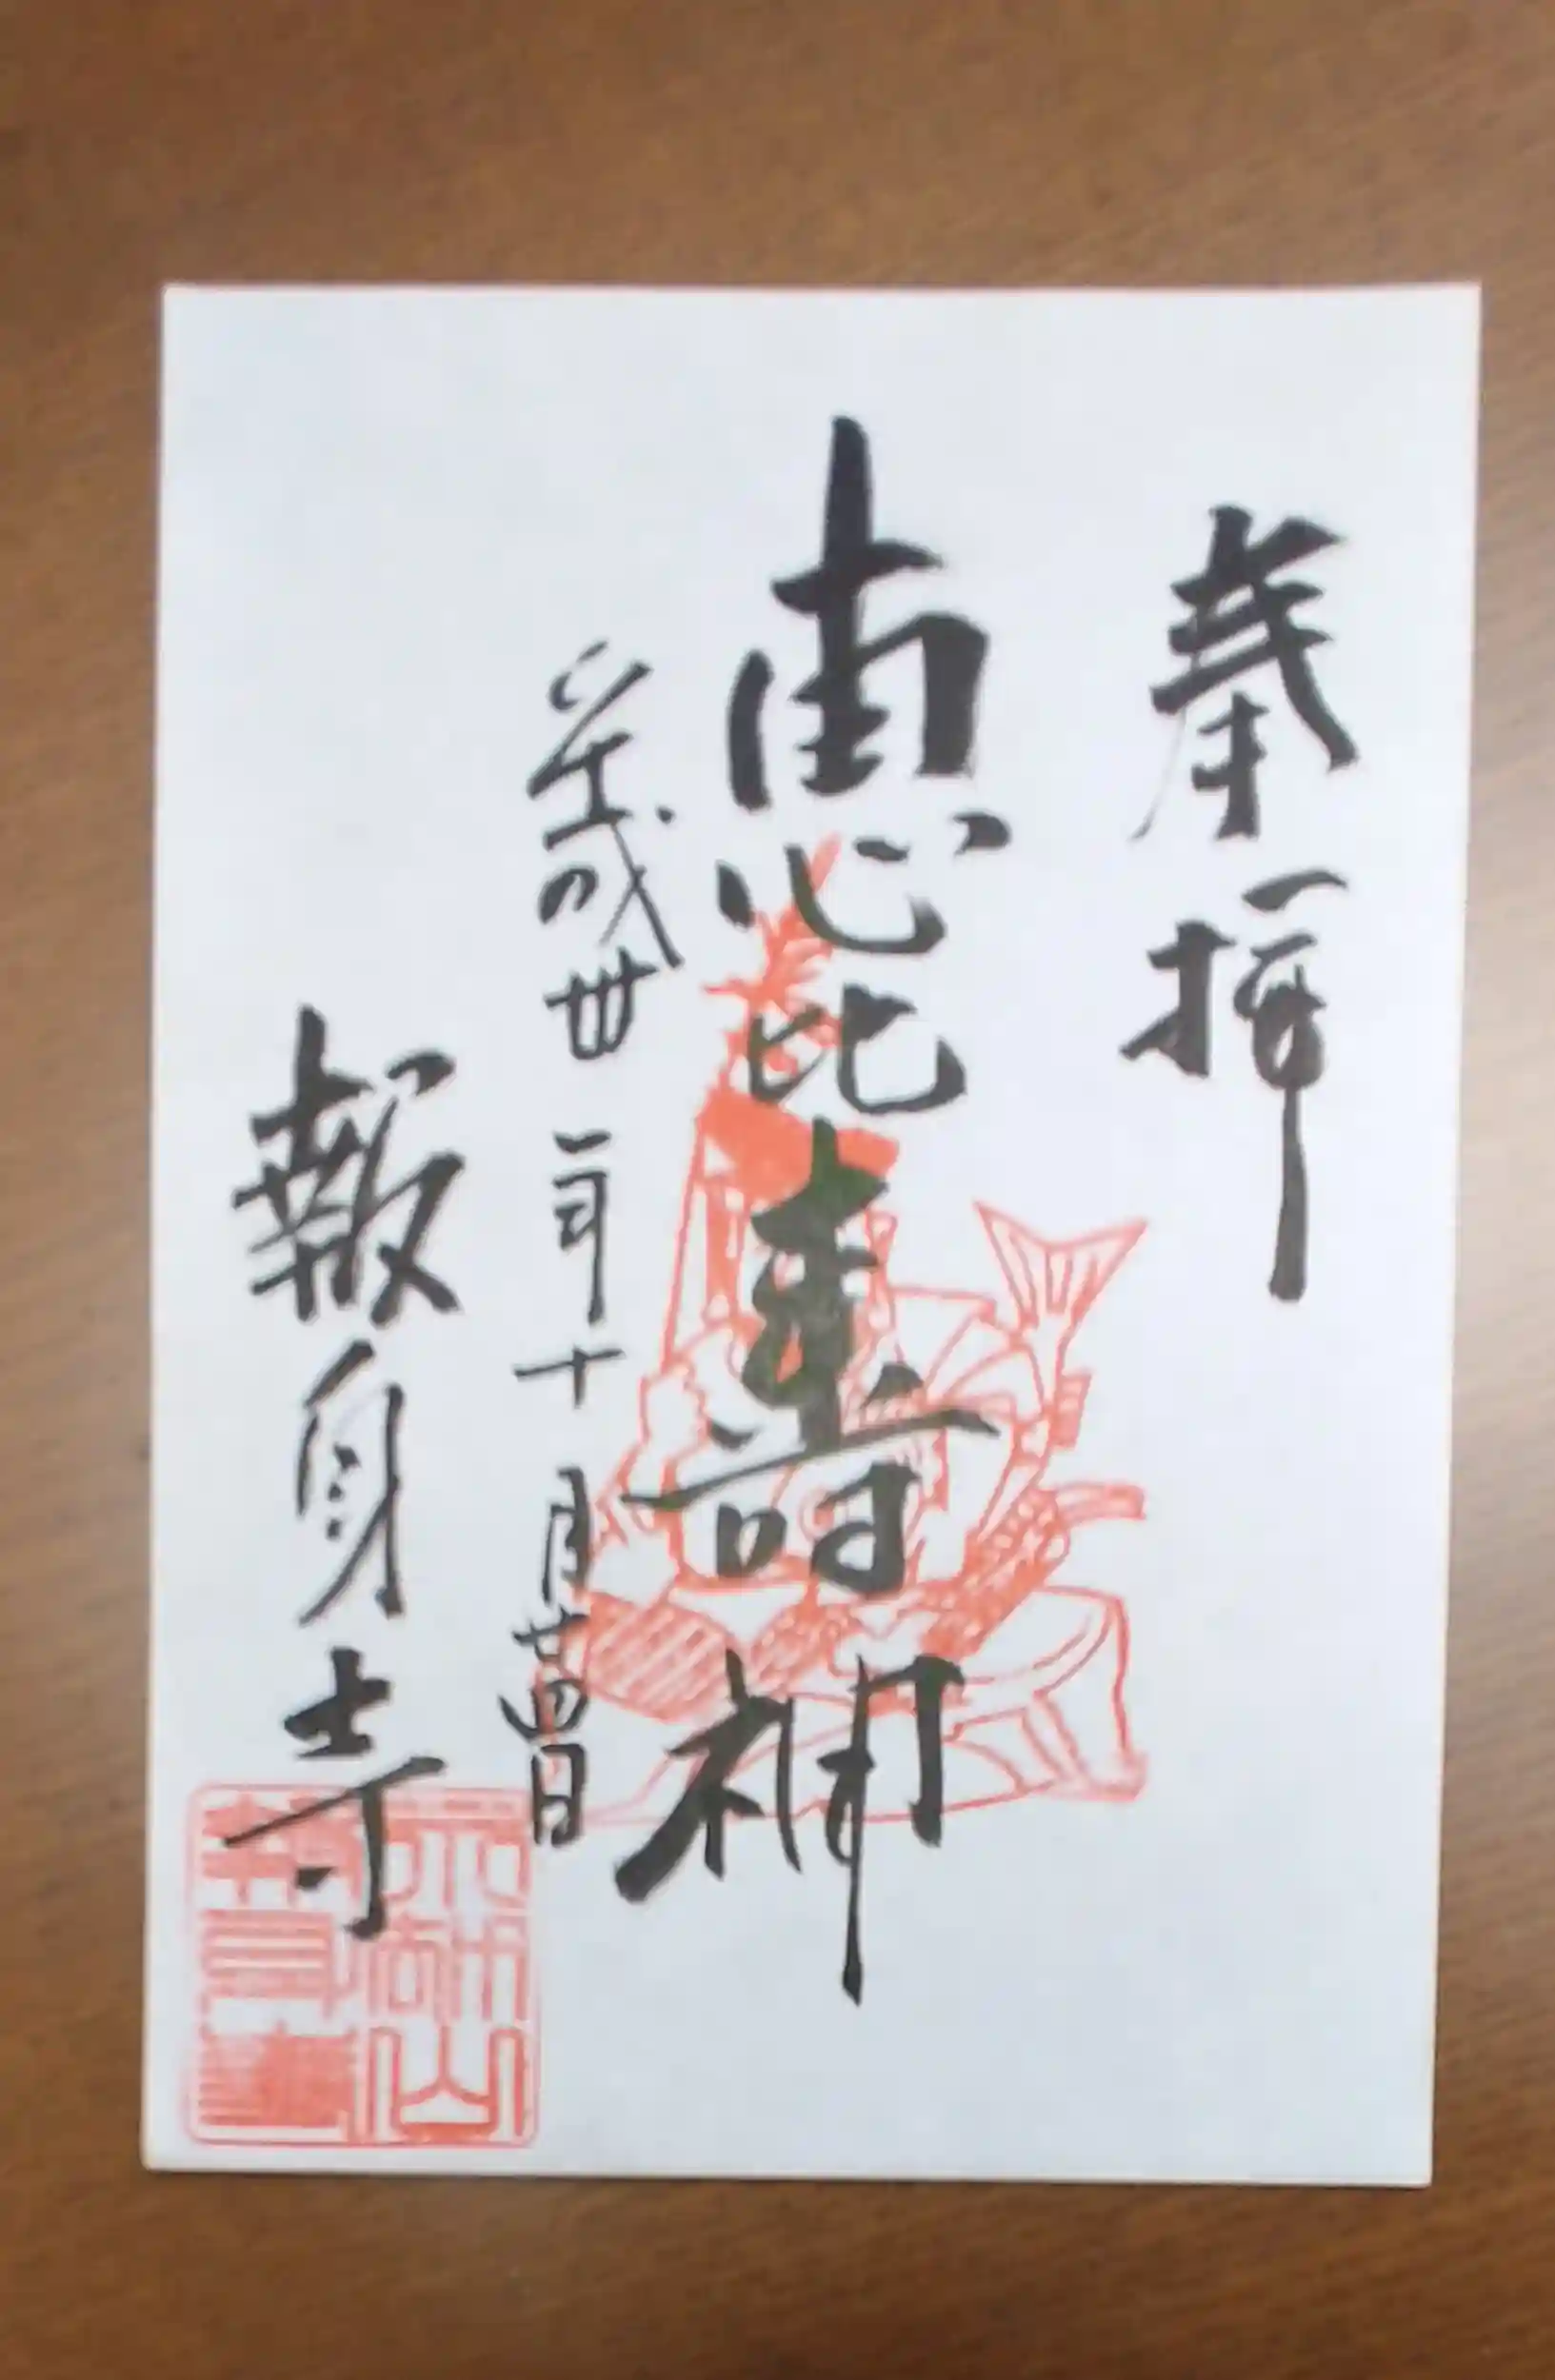 奉拝
恵比寿神
平成丗年十月廿四日
報身寺